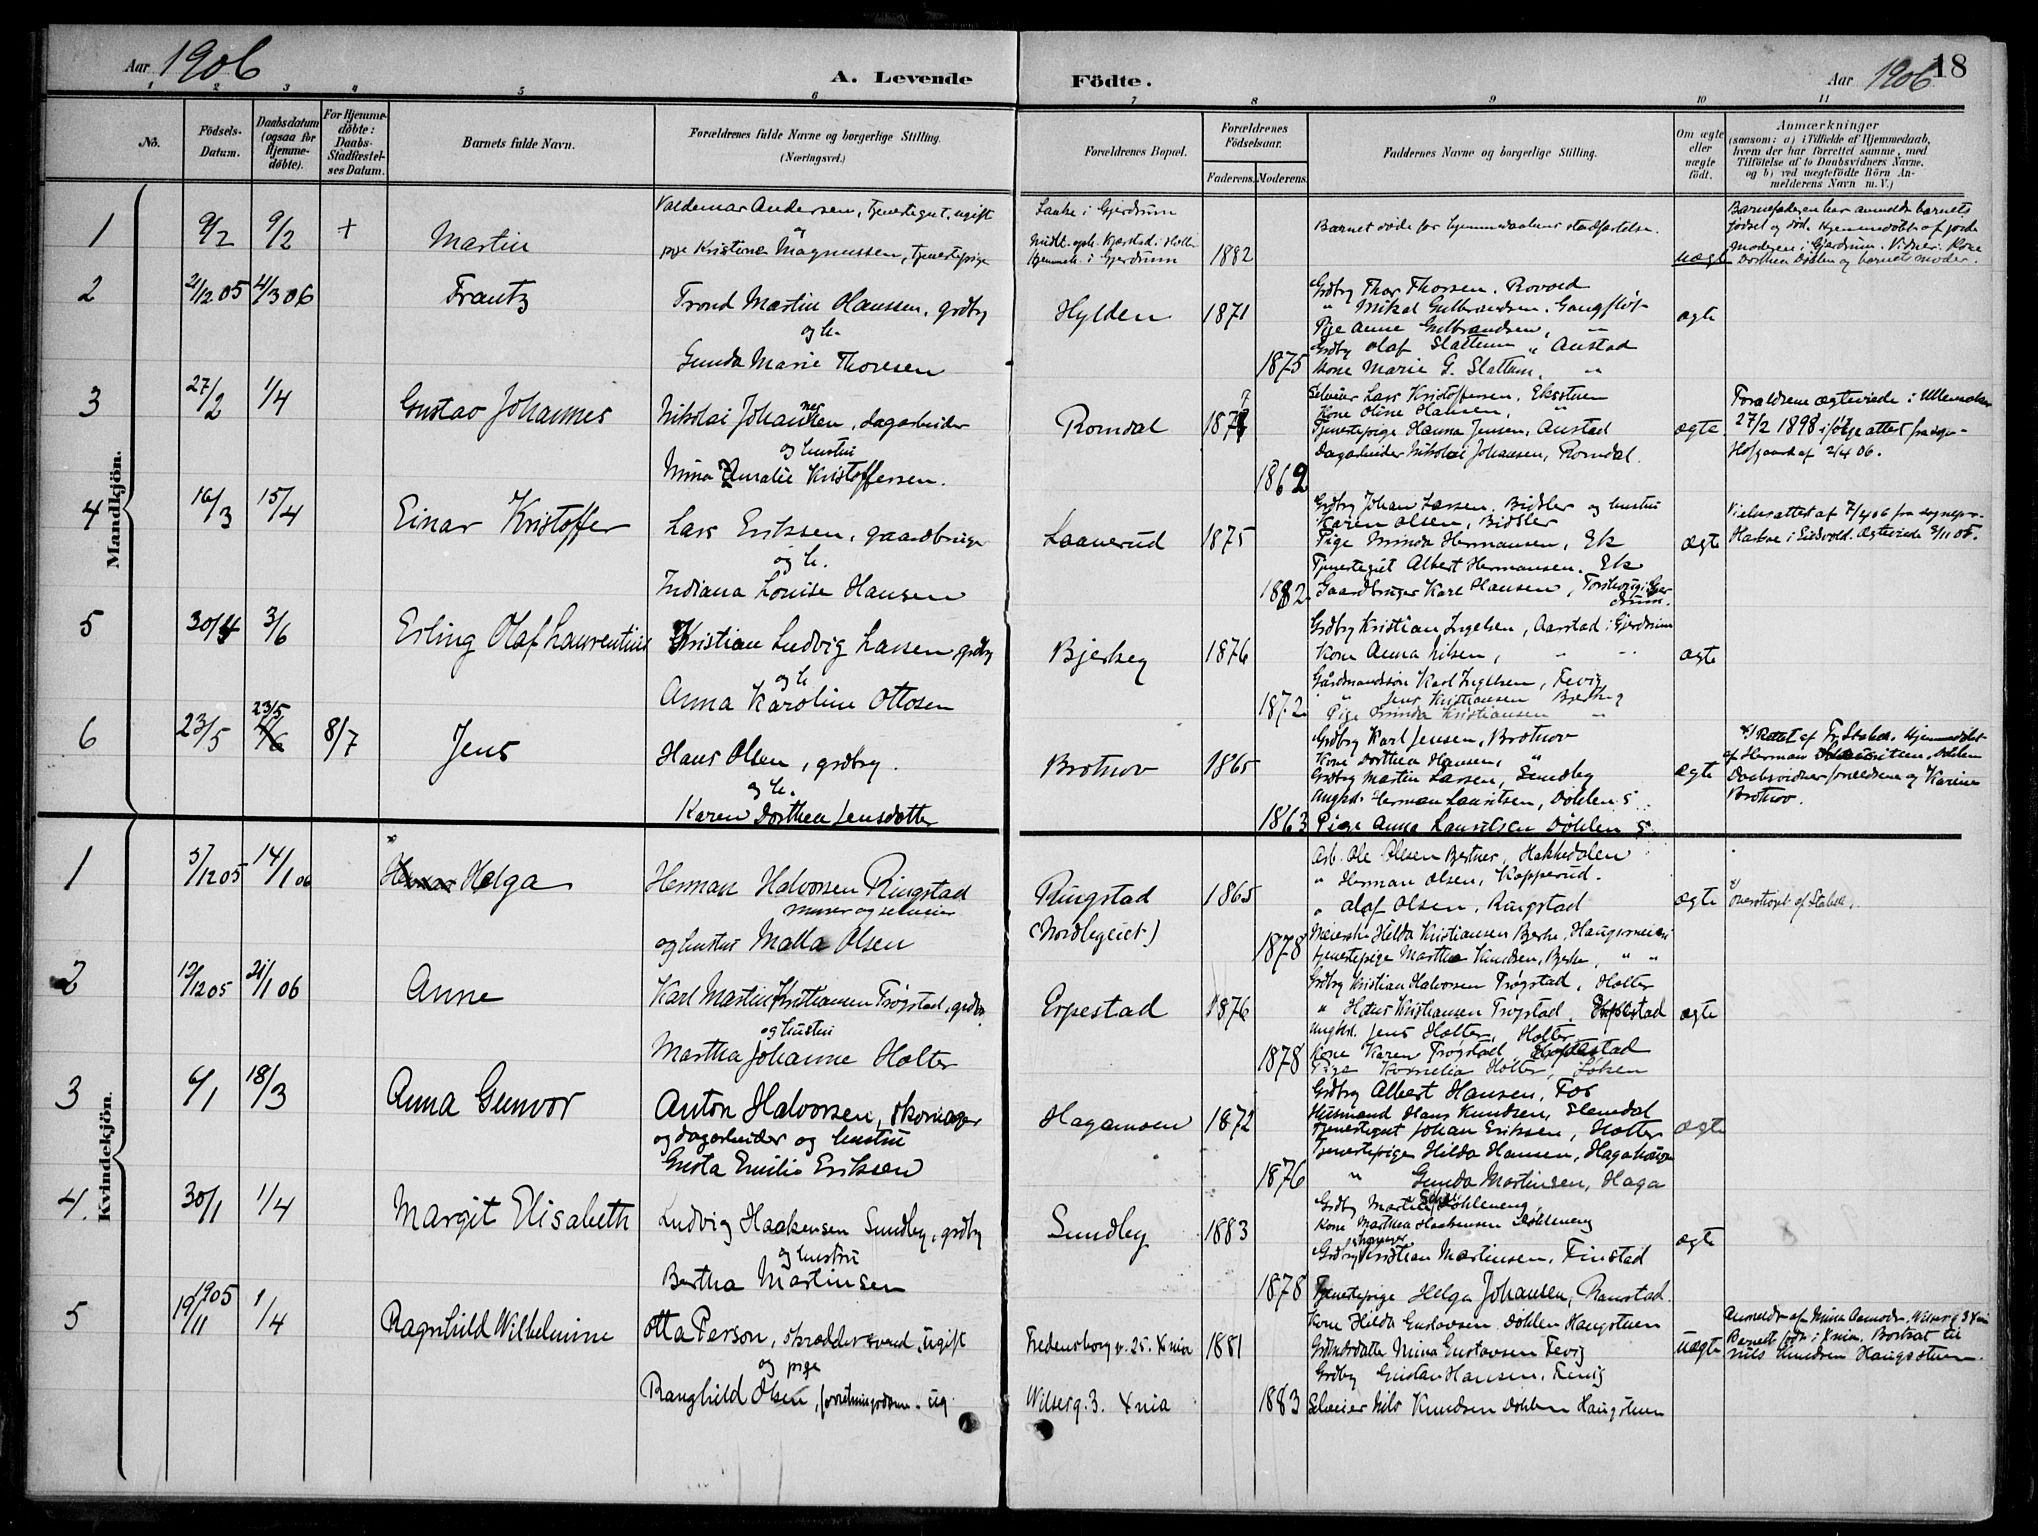 Aar 1906
A. Levende
Födte.
Aar 1906
18
1 2 3 4 5 6 7 8 9 10 11
No.
Födsels-
Datum.
Daabsdatum
(ogsaa for
Hjemme-
døbte).
For Hjemme-
døbte:
Daabs-
Stadfæstel-
ses Datum.
Barnets fulde Navn.
Forældrenes fulde Navne og borgerlige Stilling.
(Næringsvei.)
Forældrenes Bopæl.
Forældrenes
Födselsaar.
Faderens.
Moderens.
Faddernes Navne og borgerlige Stilling.
Om ægte
eller
uægte
födt.
Anmærkninger
(saasom: a) i Tilfælde af Hjemmedaab,
hvem der har forrettet samme, med
Tilföielse af to Daabsvidners Navne,
og b) ved uægtefödte Börn An-
melderens Navn m. V.)
Mandkjön.
1 9/2 9/2 + Martin
Valdemar Andersen, tjenestegut, ugift
og
pige Kristine Magnussen, tjenestepige
Laake i Gjerdrum
i Gjerdrum
1882
Barnet døde før hjemmedaabens stadfæstelse.
uægte
Barnefaderen har anmeldt barnets
fødsel og død. Hjemmedøbt af jorde
moderen i Gjerdrum. Vidner: Kone
Dorthea Døhlen og barnets moder.
2 2/12 05 4/3 06 Frantz
Trond Martin Hanssen, grdbr
og h.
Gunda Marie Thoresen
Hylden 1871
1875
Grdbr Thor Thorsen, Rovold
" Mikal Gulbrandsen, Gangflöt
Pige Anne Gulbrandsen, "
Grdbr Olaf Slattum, Austad
Kone Marie G. Slattum, "
ægte
3 27/2 1/4 Gustav Johannes
Nikolai Johansen, dagarbeider
og hustru
Mina Amalie Kristoffersen.
Romdal 187
1862
Selveier Lars Kristoffersen, Ekstuen
Kone Oline Hansen, "
Tjenestepige Hanna Jensen, Austad
Dagarbeider Nikolai Johansen, Romdal.
ægte
Forældrene ægteviede i Ullensaker
27/2 1898 ifølge attest fra sogn-
Hofgaard af 2/4 06.
4 16/3 15/4 Einar Kristoffer
Lars Eriksen, gaardbruger
og h.
Indiana Louise Hansen
Laanerud 1875
1882
Grdbr Johan Larsen, Bidsler og hustru
Karen Olsen, Bidsler
Pige Minda Hermansen, Ek
Tjenestegut Albert Hermansen, Ek
Gaardbruger Karl Hansen, Torshaug i Gjer
drum.
ægte
Vielsesattest af 7/4 06 fra sognepr.
i Eidsvold. Ægteviede 3/11 05.
5 30/4 3/6 Erling Olaf Laurentius
Kristian Ludvig Larsen, grdbr
og h
Anna Karoline Ottosen
Bjerkey 1876
1872
Grdbr Kristian Ingelsen, Aarstad i Gjerdrum
Kone Anna Nilsen, " "
Gårdmandssøn Karl Ingelsen, Fevig
" Jens Kristiansen
Pige Minda Kristiansen "
ægte
6 23/5 23/5 4/6 8/7 Jens
Hans Olsen, grdbr.
og h.
Karen Dorthea Jensdatter
Brotnov 1865
1863
Grdbr Karl Jensen, Brotnov
Kone Dorthea Hansen, "
Grdbr Martin Larsen, Sundby
Ungkl. Herman Lauritsen, Döhlen s
Pige Anna Lauritsen Döhlen s.
ægte
x) Rettet af Fr. Stabel. Hjemmedøbt
af Herman Lauritsen, Døhlen
Daabsvidner forældrene og Karine
Brotnov.
Kvindekjön.
1 5/12 05 14/1 06 Helga
Herman Halvorsen Ringstad
murer og selveier
og hustru Malla Olsen
Ringstad
(Nordbyeiet)
1865
1878
Arb. Ole Olsen Berker, Hakkedalen
" Herman Olsen, Kopperud.
" Olaf Olsen, Ringstad
Meierske Hilda Kristiansen Berke, Haugsmeieri
tjenestepige Marthe Knudsen, Berke, " "
ægte
x) Overstrøget af Stabel.
2 12/12 05 21/1 06 Anne
Karl Martin Kristiansen Trøgstad, grdbr.
og hustru
Martha Johanne Holter
Erpestad 1876
1878
Grdbr Kristian Halvorsen Trøgstad, Holter
" Hans Kristiansen Trøgstad, Erpestad
Ungkl. Jens Holter, Holter
Kone Karen Trøgstad, Erpestad
Pige Kornelia Holter, Løken
ægte
3 6/1 18/3 Anna Gunvor
Anton Halvorsen, skomager
og dagarbeider og hustru
Gusta Emilie Eriksen
Hagamoen 1872
1876
Grdbr Albert Hansen, Fos
Husmand Hans Knudsen, Elendal
Tjenestegut Johan Eriksen, Holter
Tjenestepige Hilda Hansen, Hagahaugen
" Gunda Martinsen, Haga
ægte
4. 30/1 1/4 Margit Elisabeth
Ludvig Haakensen Sundby, grdbr
og hustru
Bertha Martinsen
Sundby 1883
1878
Grdbr Martin Döhleneng
Kone Marthea Haakensen Döhleneng
Grdbr Kristian Martinsen, Finstad
Tjenestepige Helga Johansen, Raustad.
ægte
5 1905 19/11 1/4 Ragnhild Wilhelmine
Otto Person, skræddersvend, ugift
og pige
Ranghild Olsen, forretningsdame, ug.
Fredensborg v. 25. Xnia
Wilserg. 3. Xnia
1881
1883
Kone Hilda Gustavsen Døhlen Haugstuen
Grdmdsdatter Mina Gustavsen Fevig
Grdbr Gustav Hansen, Fevig
Selveier Nils Knudsen Döhlen Haugstuen
uægte
Anmeldt af Mina Aamodt, Wilserg 3 Xnia
Barnet født i Xnia. Bortsat til
Nils Knudsen Haugstuen.